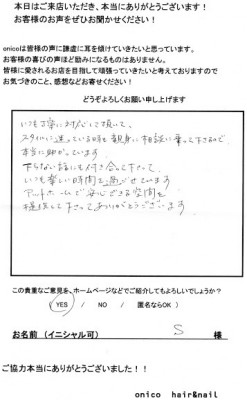 本日はご来店いただき、本当にありがとうございます!
お客様のお声をぜひお聞かせください!
onicoは皆様の声に謙虚に耳を傾けていきたいと思っています。
お客様の喜びの声ほど励みになるものはありません。
皆様に愛されるお店を目指して頑張っていきたいと考えておりますので
お気づきのこと、感想などお寄せください!
どうぞよろしくお願い申し上げます
いつも丁寧に対応して頂いて、
スタイルに迷っている時も親身に相談に乗って下さるので
本当に助かっています
下らない話にも付き合って下さって、
いつも楽しい時間を過ごせています
アットホームで安心できる空間を
提供して下さってありがとうございます
この貴重なご意見を、ホームページなどでご紹介してもよろしいでしょうか?
YES / NO / 匿名ならOK )
お名前(イニシャル可) S 様
ご協力本当にありがとうございました!!
onico hair&nail